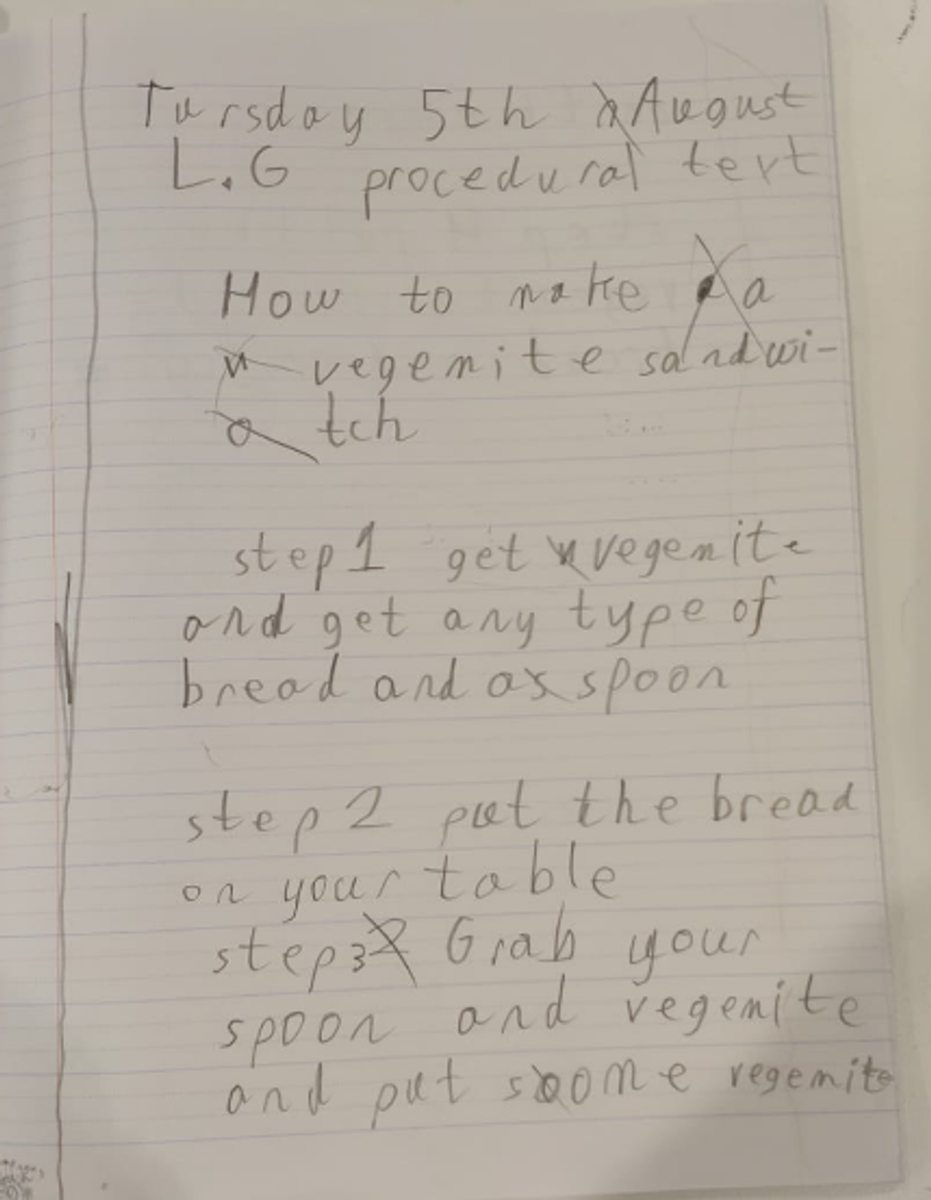 Tursday 5th August
L.G procedural text
How to make a
vegemite sandwi-
tch
step 1 get vegemite
and get any type of
bread and a spoon
step 2 put the bread
on your table
step 3 Grab your
spoon and vegemite
and put some vegemite